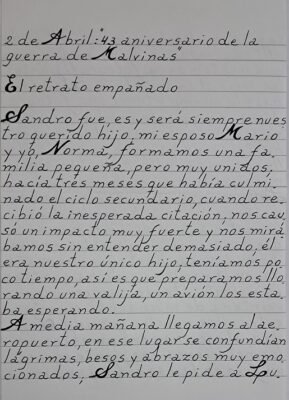 2 de Abril: "43 aniversario de la
guerra de Malvinas"
El retrato empañado
Sandro fue, es y será siempre nues
tro querido hijo, mi esposo Mario
y yo, Norma, formamos una fa
milia pequeña, pero muy unidos,
hacía tres meses que había culmi
nado el ciclo secundario, cuando re
cibió la inesperada citación, nos cau
só un impacto muy fuerte y nos mirá
bamos sin entender demasiado, él
era nuestro único hijo, teníamos po
co tiempo, así es que preparamos llo
rando una valija, un avión los esta
ba esperando.
A media mañana llegamos al ae
ropuerto, en ese lugar se confundían
lágrimas, besos y abrazos muy emo
cionados, Sandro le pide a Lpu.